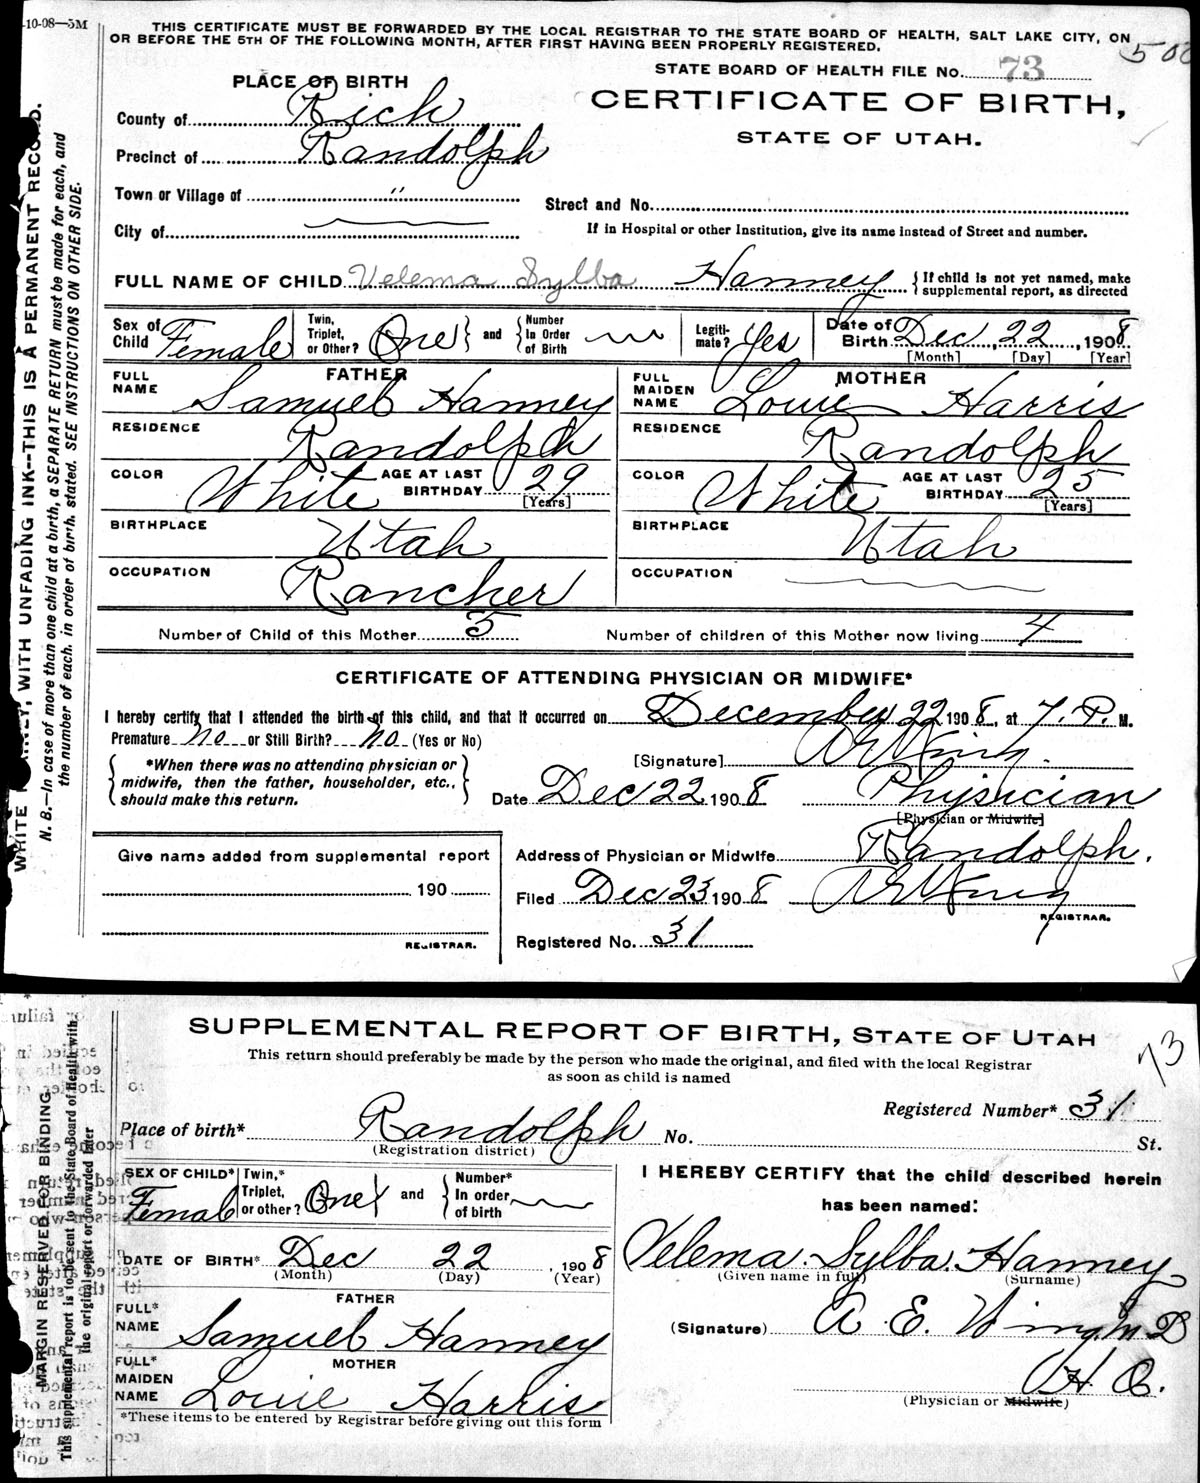 -10-08—5M
THIS CERTIFICATE MUST BE FORWARDED BY THE LOCAL REGISTRAR TO THE STATE BOARD OF HEALTH, SALT LAKE CITY, ON
OR BEFORE THE 5TH OF THE FOLLOWING MONTH, AFTER FIRST HAVING BEEN PROPERLY REGISTERED.
STATE BOARD OF HEALTH FILE No. 73
PLACE OF BIRTH
CERTIFICATE OF BIRTH,
STATE OF UTAH.
County of Rich
Precinct of Randolph
Town or Village of "
Street and No.
City of
If in Hospital or other Institution, give its name instead of Street and number.
FULL NAME OF CHILD Velema Sylba Hanney { If child is not yet named, make supplemental report, as directed
Sex of Child Female Twin, Triplet, or Other? One } and { Number In Order of Birth Legiti-mate? Yes Date of Birth Dec 22, 1908
[Month] [Day] [Year]
FATHER
FULL NAME Samuel Hanney
RESIDENCE Randolph
COLOR White AGE AT LAST BIRTHDAY 29 [Years]
BIRTHPLACE Utah
OCCUPATION Rancher
MOTHER
FULL MAIDEN NAME Louie Harris
RESIDENCE Randolph
COLOR White AGE AT LAST BIRTHDAY 25 [Years]
BIRTHPLACE Utah
OCCUPATION
Number of Child of this Mother 5 Number of children of this Mother now living 4
CERTIFICATE OF ATTENDING PHYSICIAN OR MIDWIFE*
I hereby certify that I attended the birth of this child, and that it occurred on December 22 1908, at 7. P. M.
Premature no or Still Birth? no (Yes or No)
[Signature]
{ *When there was no attending physician or midwife, then the father, householder, etc., should make this return. }
Date Dec 22 1908 Physician
[Physician or Midwife]
Address of Physician or Midwife Randolph.
Filed Dec 23 1908
REGISTRAR.
Registered No. 31
Give name added from supplemental report
190
REGISTRAR.
WITH UNFADING INK--THIS IS A PERMANENT RECORD.
N. B.—In case of more than one child at a birth, a SEPARATE RETURN must be made for each, and
the number of each, in order of birth, stated. SEE INSTRUCTIONS ON OTHER SIDE.
SUPPLEMENTAL REPORT OF BIRTH, STATE OF UTAH
73
This return should preferably be made by the person who made the original, and filed with the local Registrar
as soon as child is named
Registered Number* 31
Place of birth* Randolph No. St.
(Registration district)
SEX OF CHILD* Female Twin,* Triplet, or other? One } and { Number* In order of birth
DATE OF BIRTH* Dec 22, 1908
(Month) (Day) (Year)
FATHER
FULL* NAME Samuel Hanney
MOTHER
FULL* MAIDEN NAME Louie Harris
*These items to be entered by Registrar before giving out this form
I HEREBY CERTIFY that the child described herein
has been named:
Velema Sylba Hanney
(Given name in full) (Surname)
(Signature) A. E.
H. O.
(Physician or Midwife)
MARGIN RESERVED FOR BINDING.
This supplemental report is to be sent to the State Board of Health with
the original report or forwarded later